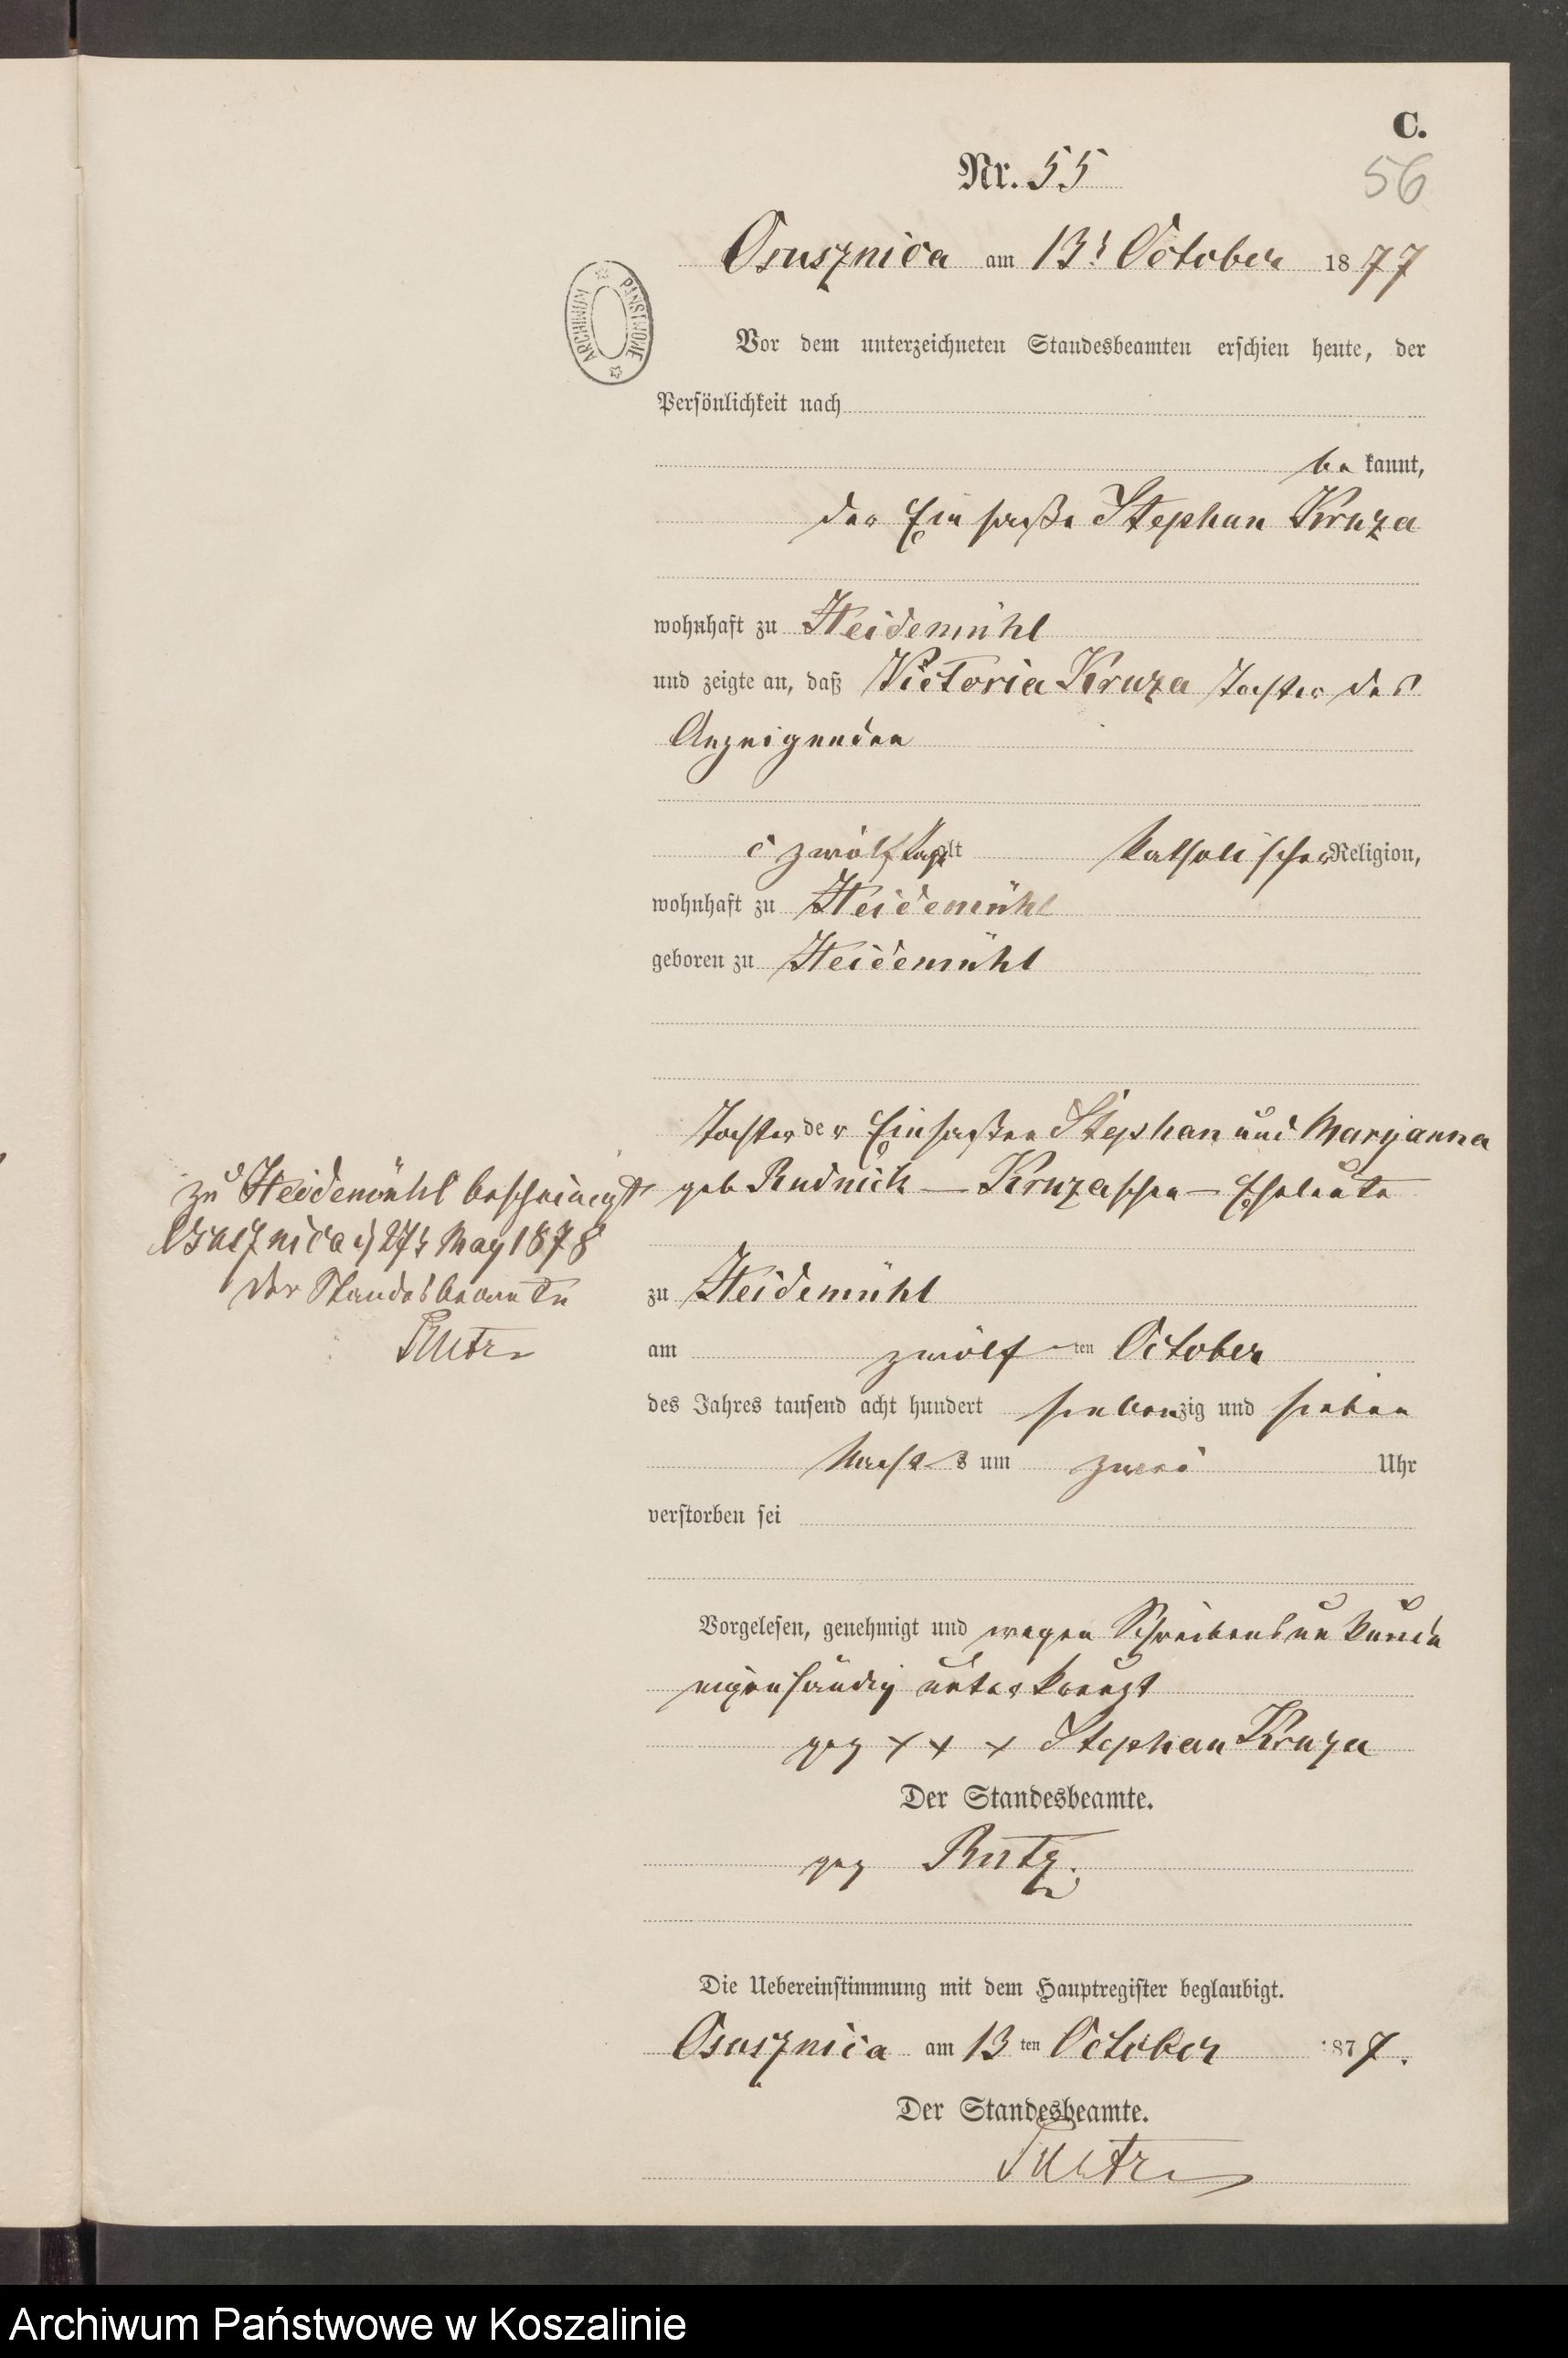 C.
Nr. 55
56
Osusznica am 13t October 1877
Vor dem unterzeichneten Standesbeamten erschien heute, der
Persönlichkeit nach
be kannt,
der Einsaße Stephan Kruza
wohnhaft zu Heidemühl
und zeigte an, daß Victoria Kruza Tochter des
Anzeigenden
zwölf Tage alt katholischer Religion,
wohnhaft zu Heidemühl
geboren zu Heidemühl
Tochter der Einsaßen Stephan und Maryanna
geb Rudnick — Kruzaschen — Eheleute
zu Heidemühl bescheinigt
Osusznica d 27t May 1878
Der Standesbeamte
Rutz
zu Heidemühl
am zwölften October
des Jahres tausend acht hundert siebenzig und sieben
Nachts um zwei Uhr
verstorben sei
Vorgelesen, genehmigt und wegen Schreibensunkunde
eigenhändig unterkreuzt
gez x x x Stephan Kruza
Der Standesbeamte.
gez Rutz.
Die Uebereinstimmung mit dem Hauptregister beglaubigt.
Osusznica am 13ten October 1877.
Der Standesbeamte.
Rutz
ARCHIWUM PAŃSTWOWE
Archiwum Państwowe w Koszalinie